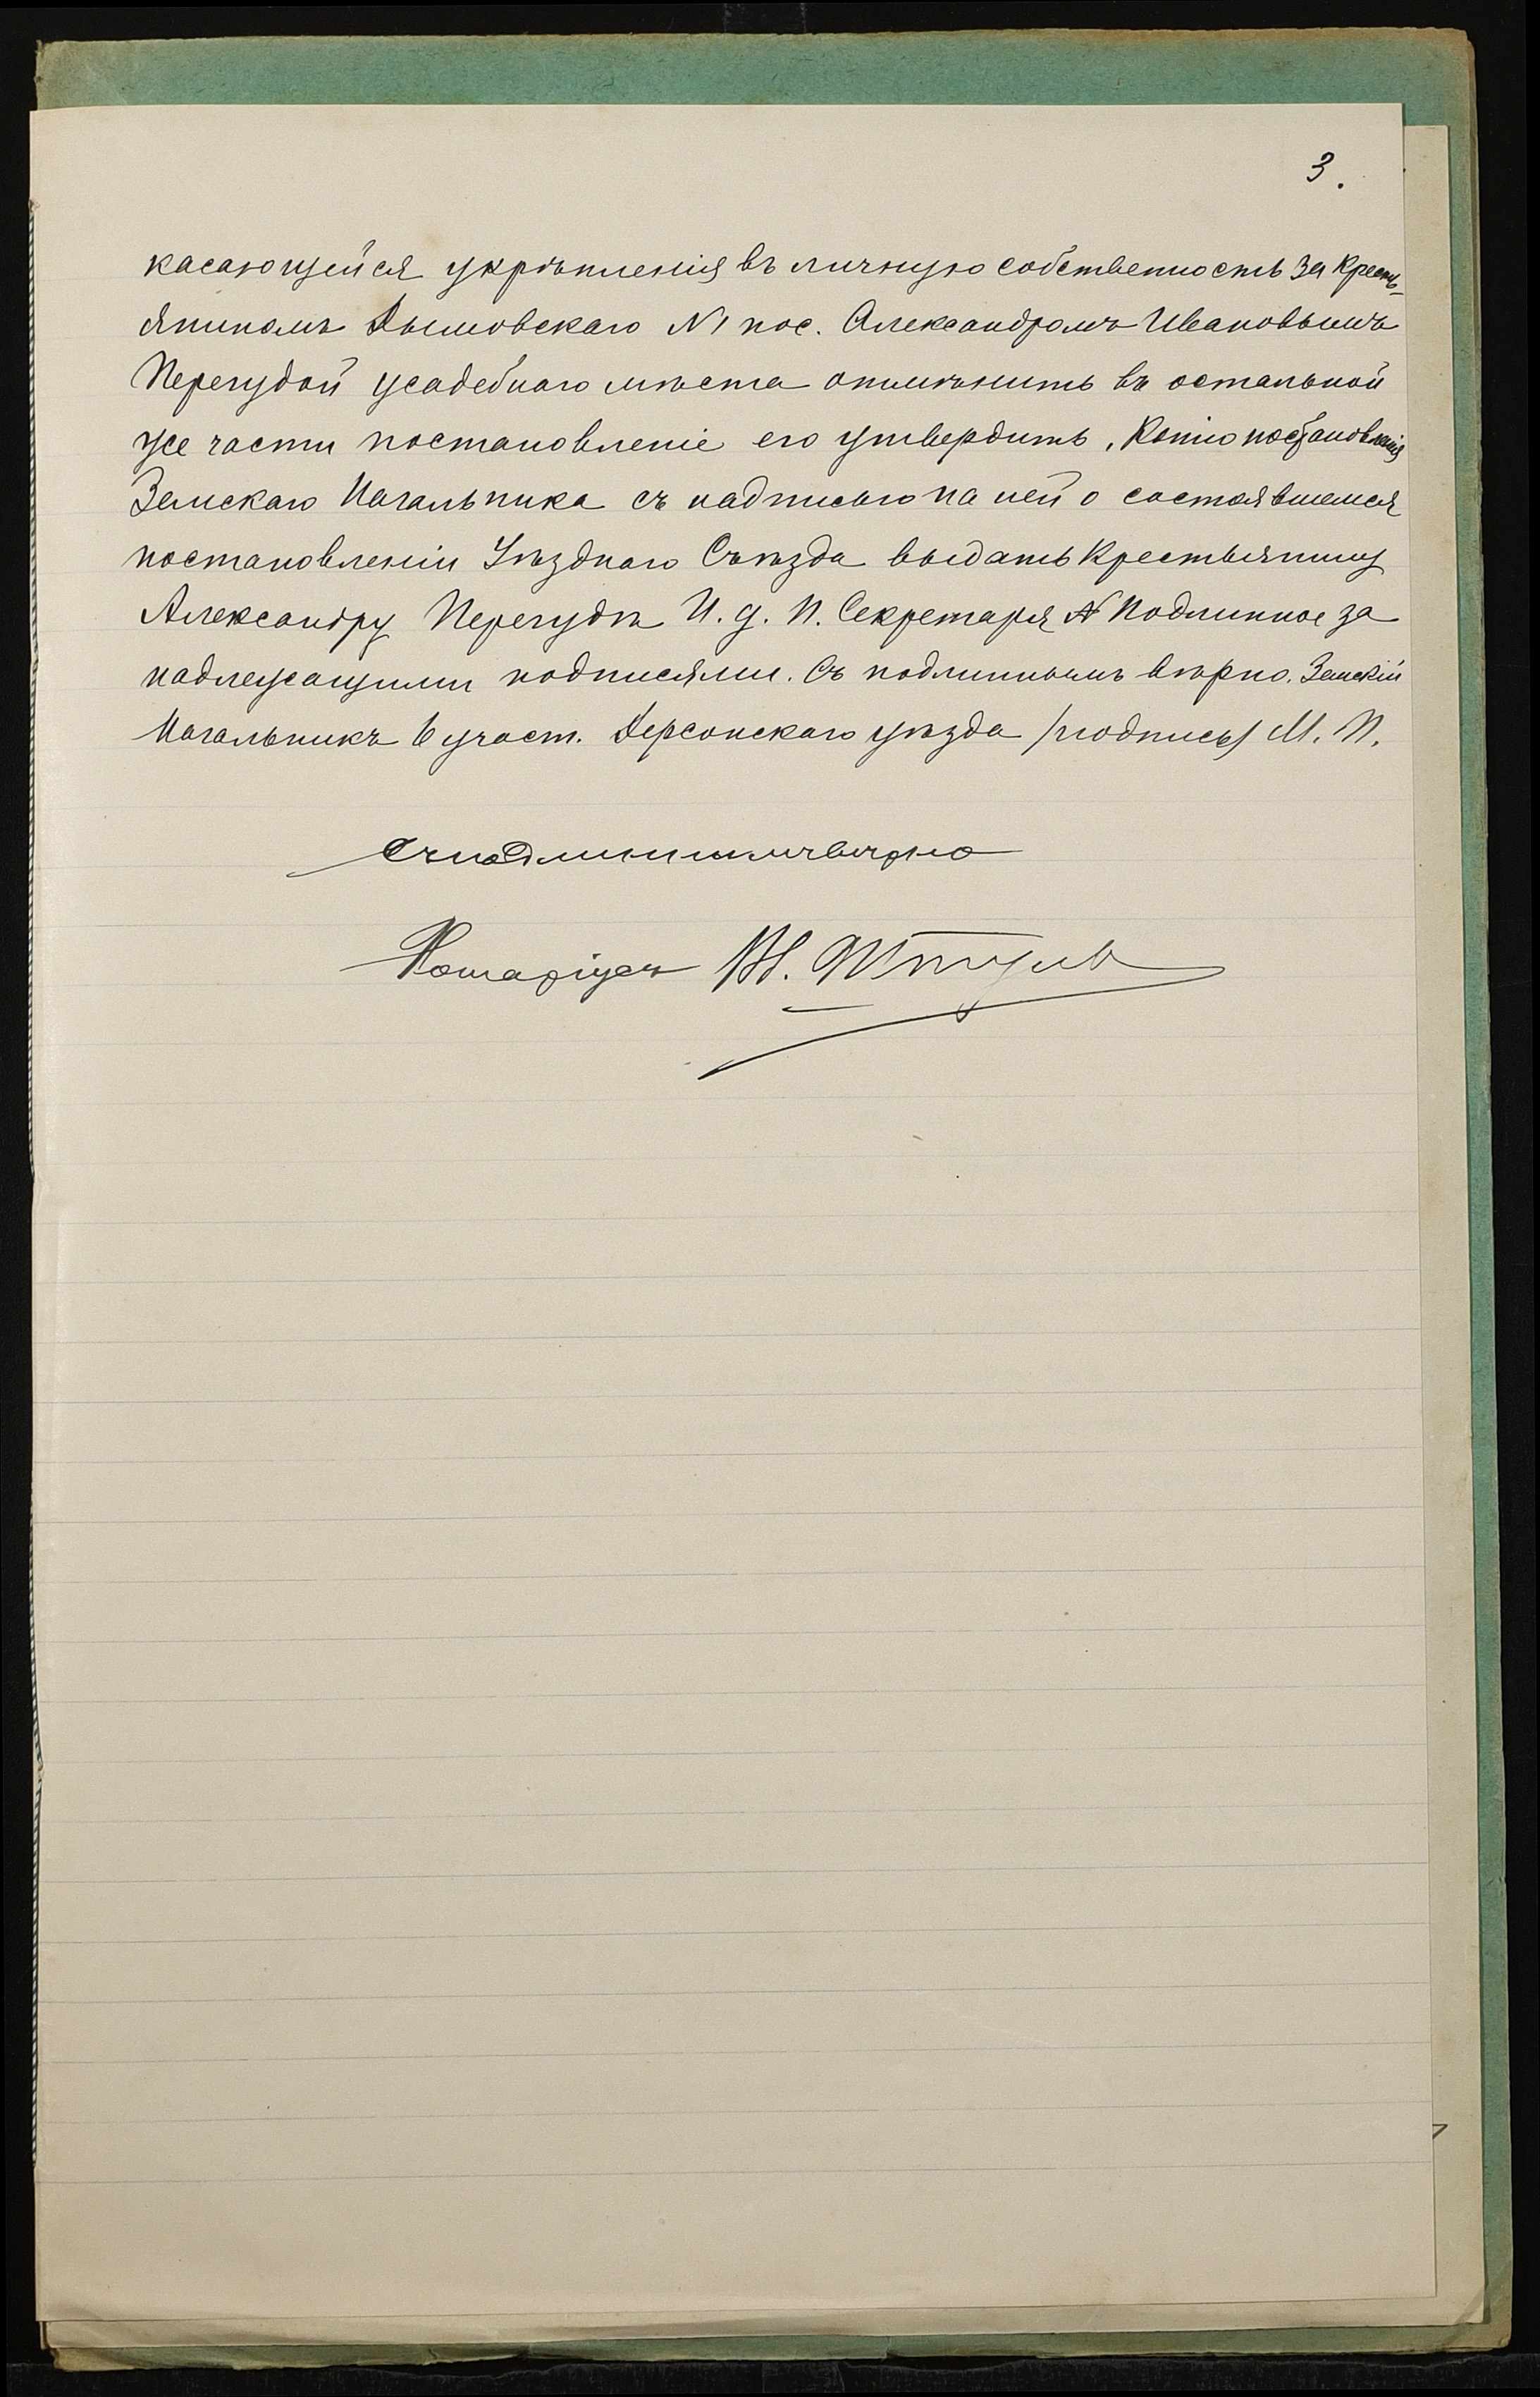 3.
касающейся укрѣпленія въ личную собственность за кресть-
яниномъ Дымовскаго № 1 пос. Александромъ Ивановымъ
Перегудой усадебнаго мѣста отмѣнить въ остальной
же части постановленіе его утвердить. Копію постановленія
Земскаго Начальника съ надписью на ней о состоявшемся
постановленіи Уѣзднаго Съѣзда выдать крестьянину
Александру Перегудѣ И. д. П. Секретаря Подлинное за
надлежащими подписями. Съ подлиннымъ вѣрно. Земскій
Начальникъ 6 участ. Херсонскаго уѣзда /подпись/ М. П.
Съ подлиннымъ вѣрно
Нотаріусъ